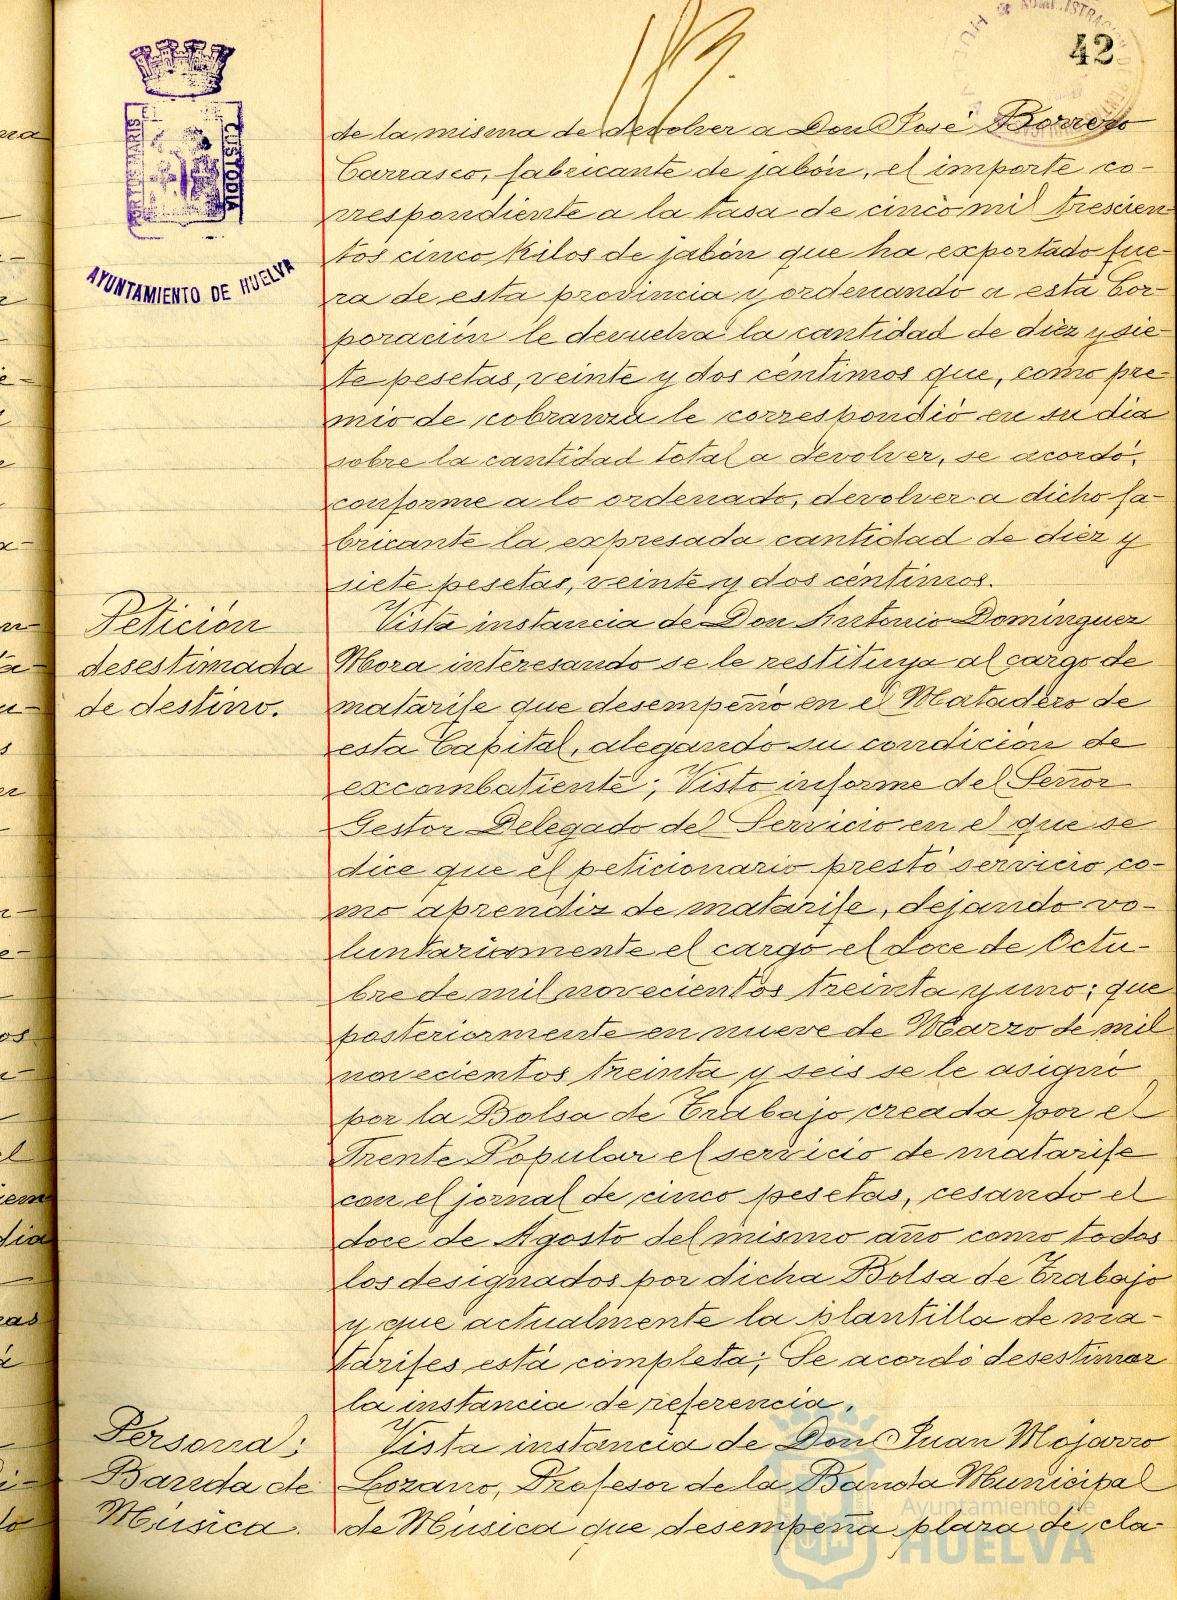 42
113.
PORTUS MARIS ET
CUSTODIA
AYUNTAMIENTO DE HUELVA
de la misma de devolver a Don José Borrero
Carrasco, fabricante de jabón, el importe co-
rrespondiente a la tasa de cinco mil trescien
tos cinco kilos de jabón que ha exportado fue-
ra de esta provincia y ordenando a esta Cor-
poración le devuelva la cantidad de diez y sie-
te pesetas, veinte y dos céntimos que, como pre-
mio de cobranza le correspondió en su dia
sobre la cantidad total a devolver, se acordó,
conforme a lo ordenado, devolver a dicho fa-
bricante la expresada cantidad de diez y
siete pesetas, veinte y dos céntimos.
Petición
desestimada
de destino.
Vista instancia de Don Antonio Domínguez
Mora interesando se le restituya al cargo de
matarife que desempeñó en el Matadero de
esta Capital, alegando su condición de
excombatiente; Visto informe del Señor
Gestor Delegado del Servicio en el que se
dice que el peticionario prestó servicio co-
mo aprendiz de matarife, dejando vo-
luntariamente el cargo el doce de Octu-
bre de mil novecientos treinta y uno; que
posteriormente en nueve de Marzo de mil
novecientos treinta y seis se le asignó
por la Bolsa de Trabajo creada por el
Frente Popular el servicio de matarife
con el jornal de cinco pesetas, cesando el
doce de Agosto del mismo año como todos
los designados por dicha Bolsa de Trabajo
y que actualmente la plantilla de ma-
tarifes está completa; Se acordó desestimar
la instancia de referencia.
Personal;
Banda de
Música.
Vista instancia de Don Juan Mojarro
Lozano, Profesor de la Banda Municipal
de Música que desempeña plaza de cla-
Ayuntamiento de
HUELVA